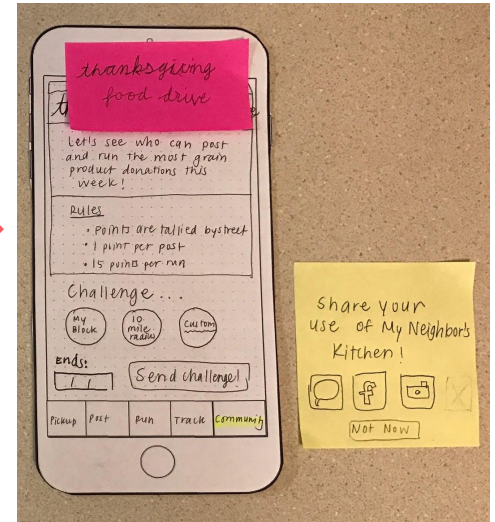 thanksgiving
food drive
Let's see who can post
and run the most grain
product donations this
week!
Rules
• points are tallied by street
• 1 point per post
• 15 points per run
Challenge...
My
Block
10
mile
radius
Custom
Ends:
/ /
Send challenge!
Pickup Post Run Track Community
Share your
use of My Neighbor's
Kitchen!
f
Not Now